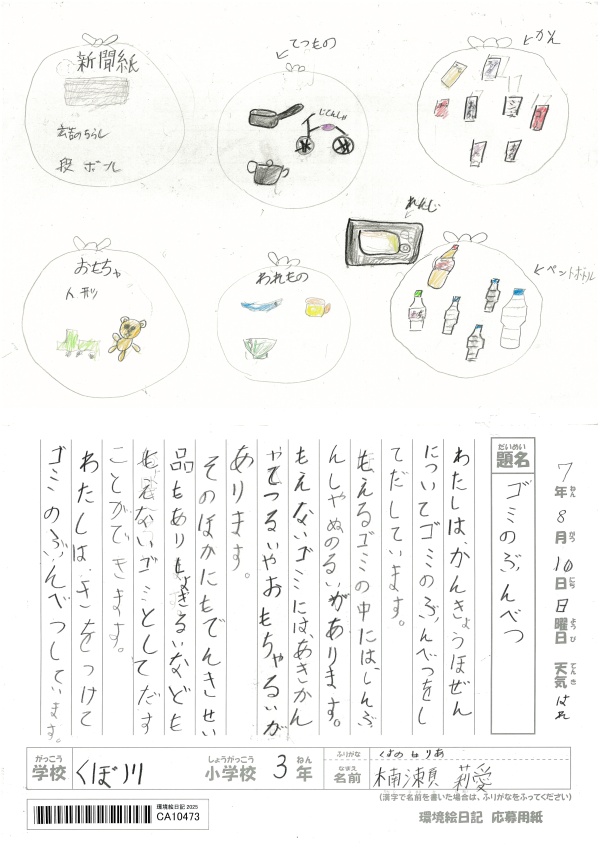 新聞紙
広告のちらし
段ボール
てつもの
じてんしゃ
かん
おもちゃ
人形
われもの
れんじ
ペットボトル
7年8月10日日曜日 天気はれ
ねん
がつ
にち
ようび
てんき
だいめい
題名
ゴミのぶんべつ
わたしは、かんきょうほぜん
についてゴミのぶんべつをし
てだしています。
もえるゴミの中には、しんぶ
んしやぬのるいがあります。
もえないゴミには、あきかん
やてつるいやおもちゃるいが
あります。
そのほかにもでんきせい
品もありしょきるいなども
もえないゴミとしてだす
ことができます。
わたしは、きをつけて
ゴミのぶんべつしています。
がっこう
学校
くぼ川
しょうがっこう
小学校
3年
ねん
ふりがな
なまえ
名前
楠瀬 莉愛
(漢字で名前を書いた場合は、ふりがなをふってください)
環境絵日記 2025
CA10473
環境絵日記 応募用紙